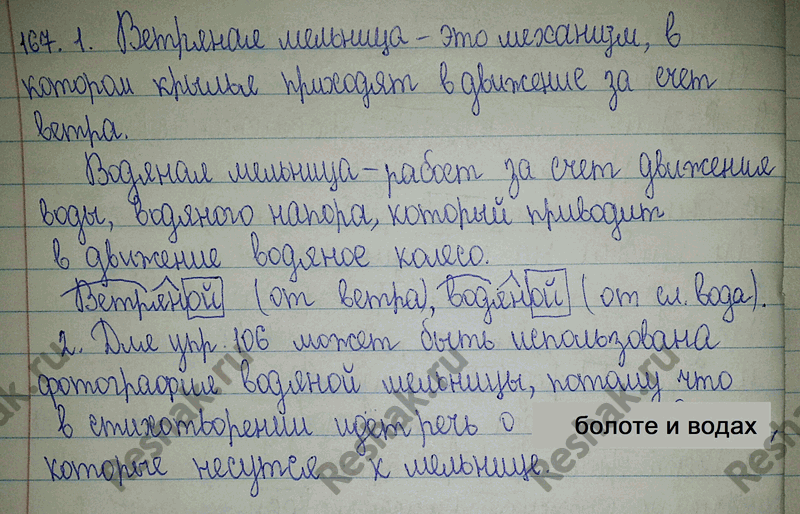 167. 1. Ветряная мельница - это механизм, в
котором крылья приходят в движение за счет
ветра.
Водяная мельница - рабоет за счет движения
воды, водяного напора, который приводит
в движение водяное колесо.
Ветряной (от ветра), водяной (от сл. вода).
2. Для упр. 106 может быть использована
фотография водяной мельницы, потому что
в стихотворении идет речь о болоте и водах,
которые несутся к мельнице.
Reshak.ru
Reshak.ru
Reshak.ru
Reshak.ru